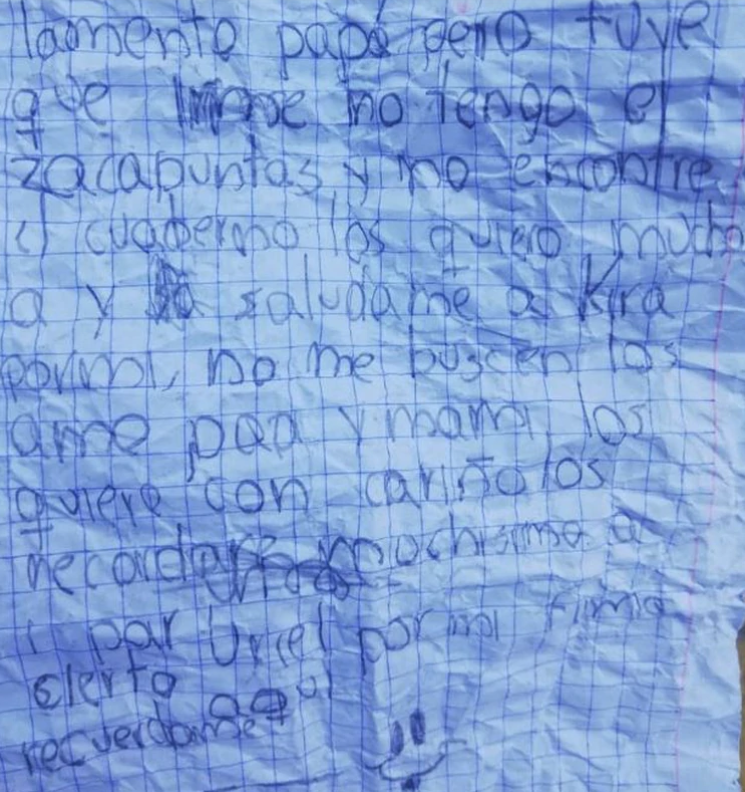 lamento papá pero tuve
que irme no tengo el
zacapuntas y no encontre
el cuaderno los quiero mucho
a y saludame a Kira
pormi, no me buscen los
ame papa y mama los
quiere con cariño los
recordare muchisimo a
por Uriel por mi firma
cierto aqui
recuerdame